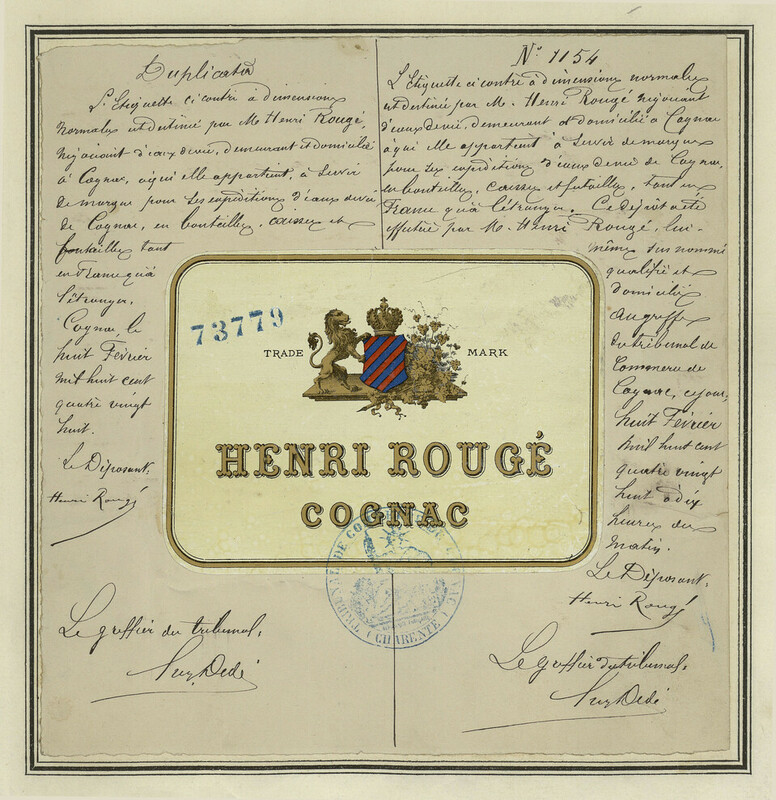 Duplicata
L'Etiquette ci contre à dimensions
normales est destinée par Mr Henri Rougé,
négociant d'eaux de vie, demeurant et domicilié
à Cognac, à qui elle appartient, à servir
de marque pour ses expéditions d'eaux de vie
de Cognac, en bouteilles, caisses et
futailles tant
en France qu'à
l'étranger.
Cognac, le
huit Février
mil huit cent
quatre vingt
huit.
Le Déposant,
Henri Rougé
Le greffier du tribunal,
N° 1154
L'Etiquette ci contre à dimensions normales
est destinée par M. Henri Rougé négociant
d'eaux de vie, demeurant et domicilié à Cognac
à qui elle appartient à servir de marque
pour ses expéditions d'eaux de vie de Cognac,
en bouteilles, caisses et futailles, tant en
France qu'à l'étranger. Ce dépôt a été
effectué par M. Henri Rougé, lui-
même sus nommé
qualifié et
domicilié
au greffe
du tribunal de
Commerce de
Cognac, ce jour,
huit Février
mil huit cent
quatre vingt
huit à dix
heures du
matin.
Le Déposant,
Henri Rougé
Le greffier du tribunal,
73779
TRADE MARK
HENRI ROUGÉ
COGNAC
TRIBUNAL DE COMMERCE COGNAC
(CHARENTE)